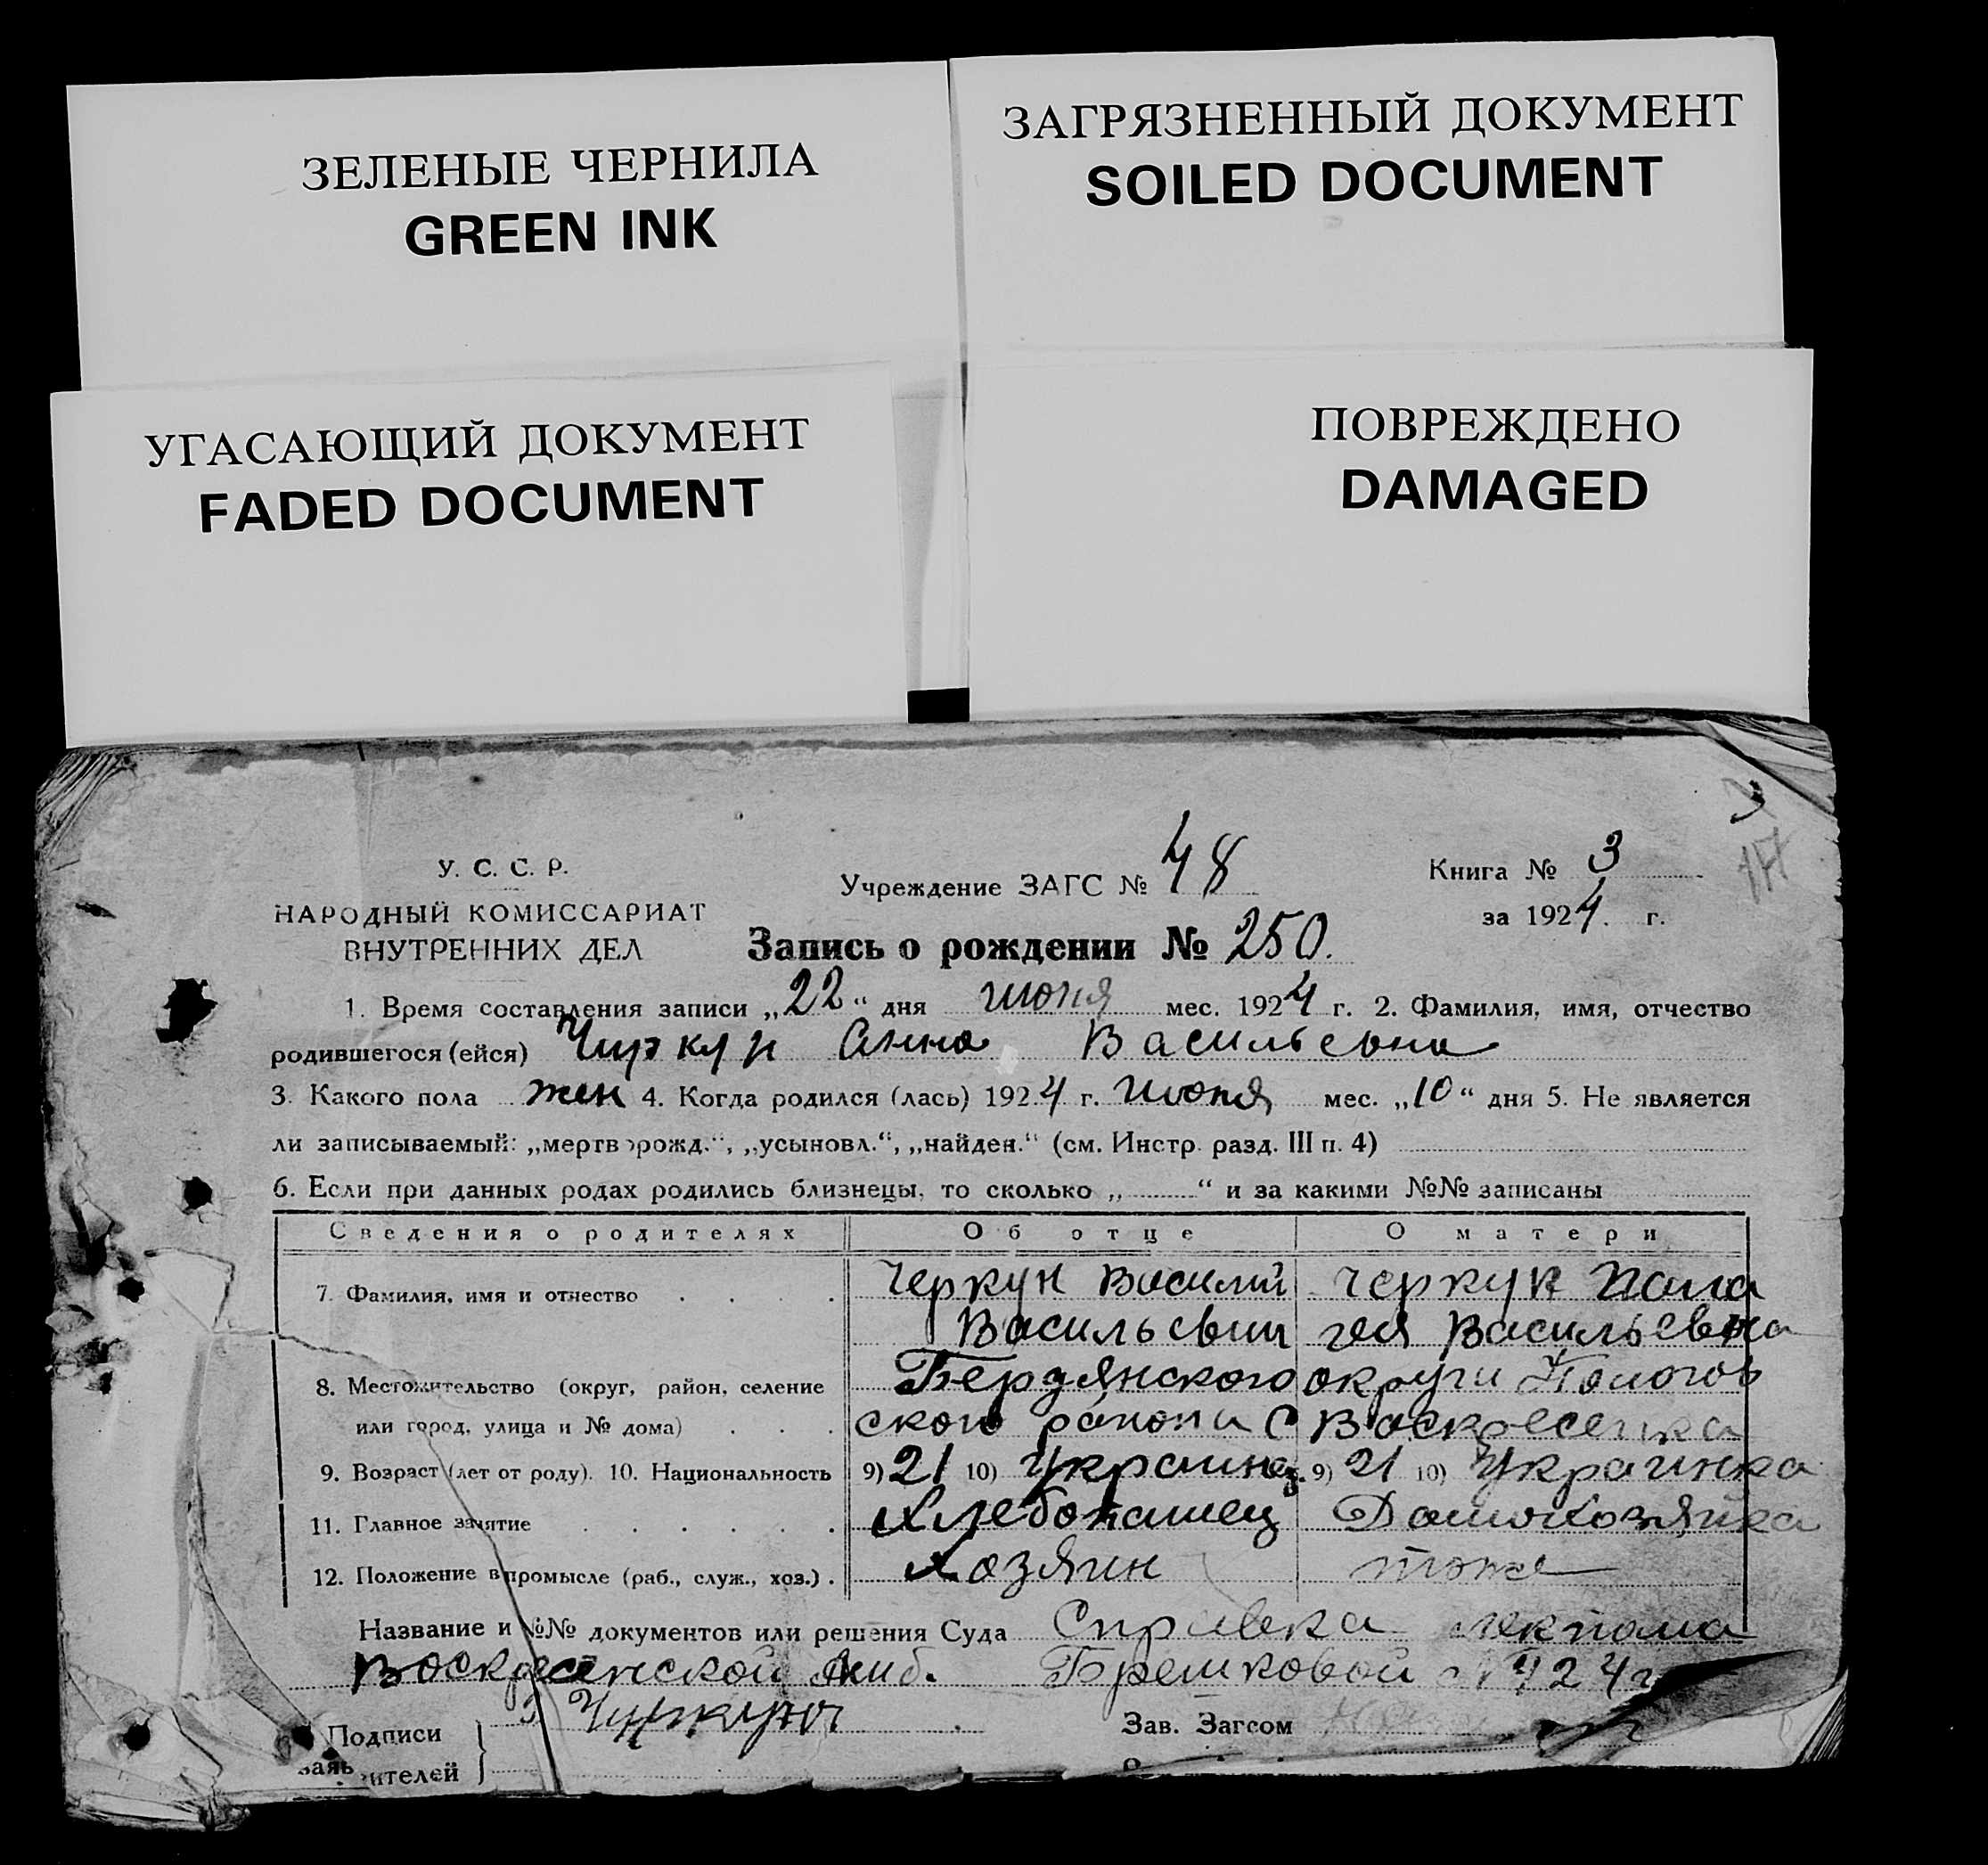 ЗЕЛЕНЫЕ ЧЕРНИЛА
GREEN INK
ЗАГРЯЗНЕННЫЙ ДОКУМЕНТ
SOILED DOCUMENT
УГАСАЮЩИЙ ДОКУМЕНТ
FADED DOCUMENT
ПОВРЕЖДЕНО
DAMAGED
У. С. С. Р.
НАРОДНЫЙ КОМИССАРИАТ
ВНУТРЕННИХ ДЕЛ
Учреждение ЗАГС № 48
Книга № 3
за 1924 г.
Запись о рождении № 250.
1. Время составления записи „22“ дня июня мес. 1924 г. 2. Фамилия, имя, отчество
родившегося (ейся) Чиркун Анна Васильевна
3. Какого пола жен 4. Когда родился (лась) 1924 г. июня мес. „10“ дня 5. Не является
ли записываемый: „мертворожд.“, „усыновл.“, „найден.“ (см. Инстр. разд. III п. 4)
6. Если при данных родах родились близнецы, то сколько „ “ и за какими №№ записаны
Сведения о родителях Об отце О матери
7. Фамилия, имя и отчество Черкун Василий Черкун Пела
Васильевич гея Васильевна
8. Местожительство (округ, район, селение Бердянского округи Пологов
или город, улица и № дома) ского района С Воскресенка
9. Возраст (лет от роду). 10. Национальность 9) 21 10) Украинец. 9) 21 10) Украинка
11. Главное занятие Хлебопашец Домохозяйка
12. Положение в промысле (раб., служ., хоз.) Хозяин тоже
Название и №№ документов или решения Суда Справка
Воскресенской Амб. 1924 г
Подписи Чиркун Зав. Загсом
заявителей